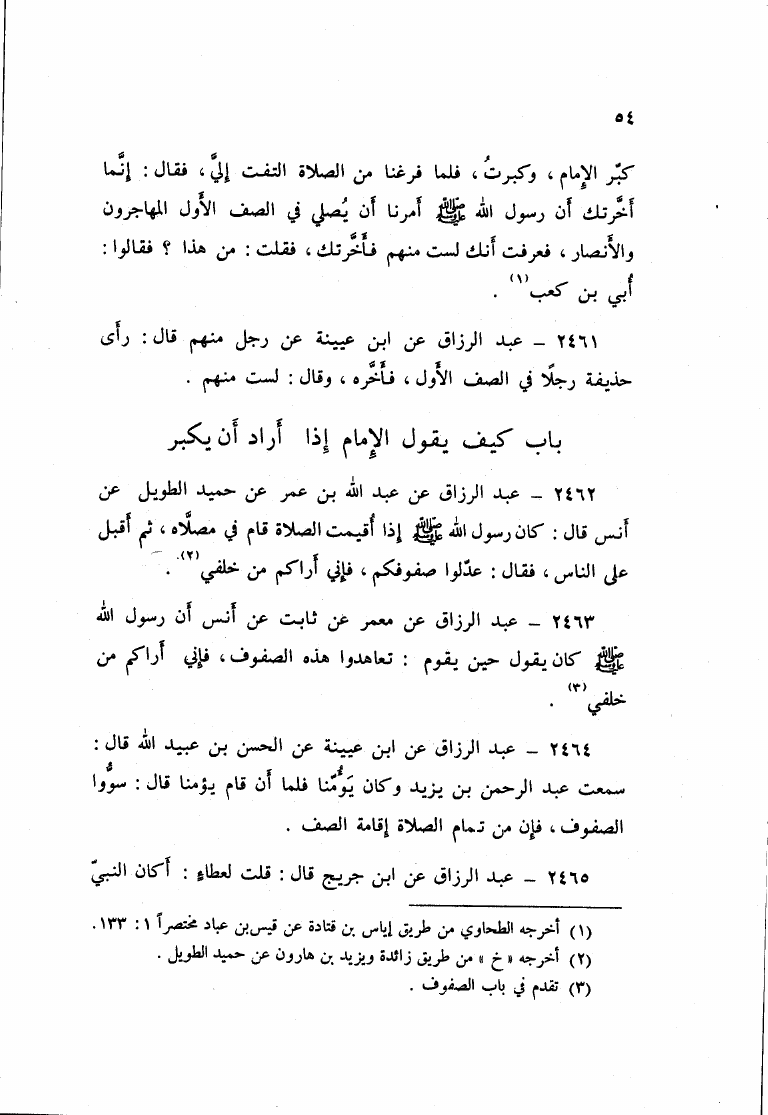 ٥٤
كبّر الإمام ، وكبرتُ ، فلما فرغنا من الصلاة التفت إليَّ ، فقال : إنَّما
أخَّرتك أن رسول الله ﷺ أمرنا أن يُصلي في الصف الأول المهاجرون
والأنصار ، فعرفت أنك لست منهم فأخَّرتك ، فقلت : من هذا ؟ فقالوا :
أُبي بن كعب(١) .
٢٤٦١ – عبد الرزاق عن ابن عيينة عن رجل منهم قال : رأى
حذيفة رجلًا في الصف الأول ، فأخَّره ، وقال : لست منهم .
باب كيف يقول الإمام إذا أراد أن يكبر
٢٤٦٢ – عبد الرزاق عن عبد الله بن عمر عن حميد الطويل عن
أنس قال : كان رسول الله ﷺ إذا أُقيمت الصلاة قام في مصلَّاه ، ثم أقبل
على الناس ، فقال : عدّلوا صفوفكم ، فإني أراكم من خلفي(٢) .
٢٤٦٣ – عبد الرزاق عن معمر عن ثابت عن أنس أن رسول الله
ﷺ كان يقول حين يقوم : تعاهدوا هذه الصفوف ، فإني أراكم من
خلفي(٣) .
٢٤٦٤ – عبد الرزاق عن ابن عيينة عن الحسن بن عبيد الله قال :
سمعت عبد الرحمن بن يزيد وكان يَؤُمّنا فلما أن قام يؤمنا قال : سوُّوا
الصفوف ، فإن من تمام الصلاة إقامة الصف .
٢٤٦٥ – عبد الرزاق عن ابن جريج قال : قلت لعطاءٍ : أكان النبيّ
(١) أخرجه الطحاوي من طريق إياس بن قتادة عن قيس بن عباد مختصراً ١ : ١٣٣.
(٢) أخرجه « خ » من طريق زائدة ويزيد بن هارون عن حميد الطويل .
(٣) تقدم في باب الصفوف .